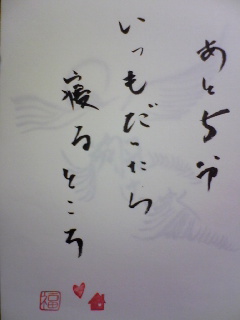 あと5分
いつもだったら
寝るところ
福